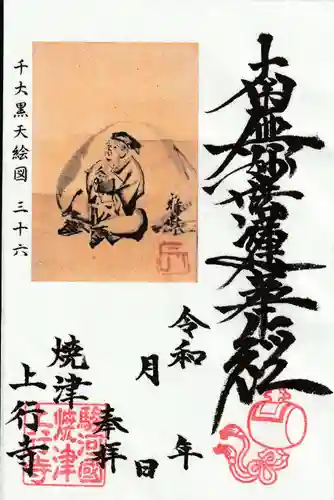 南無妙法蓮華経
令和 年
月 日
奉拝
焼津
上行寺
千大黒天絵図 三十六
駿河國
焼津
上行寺